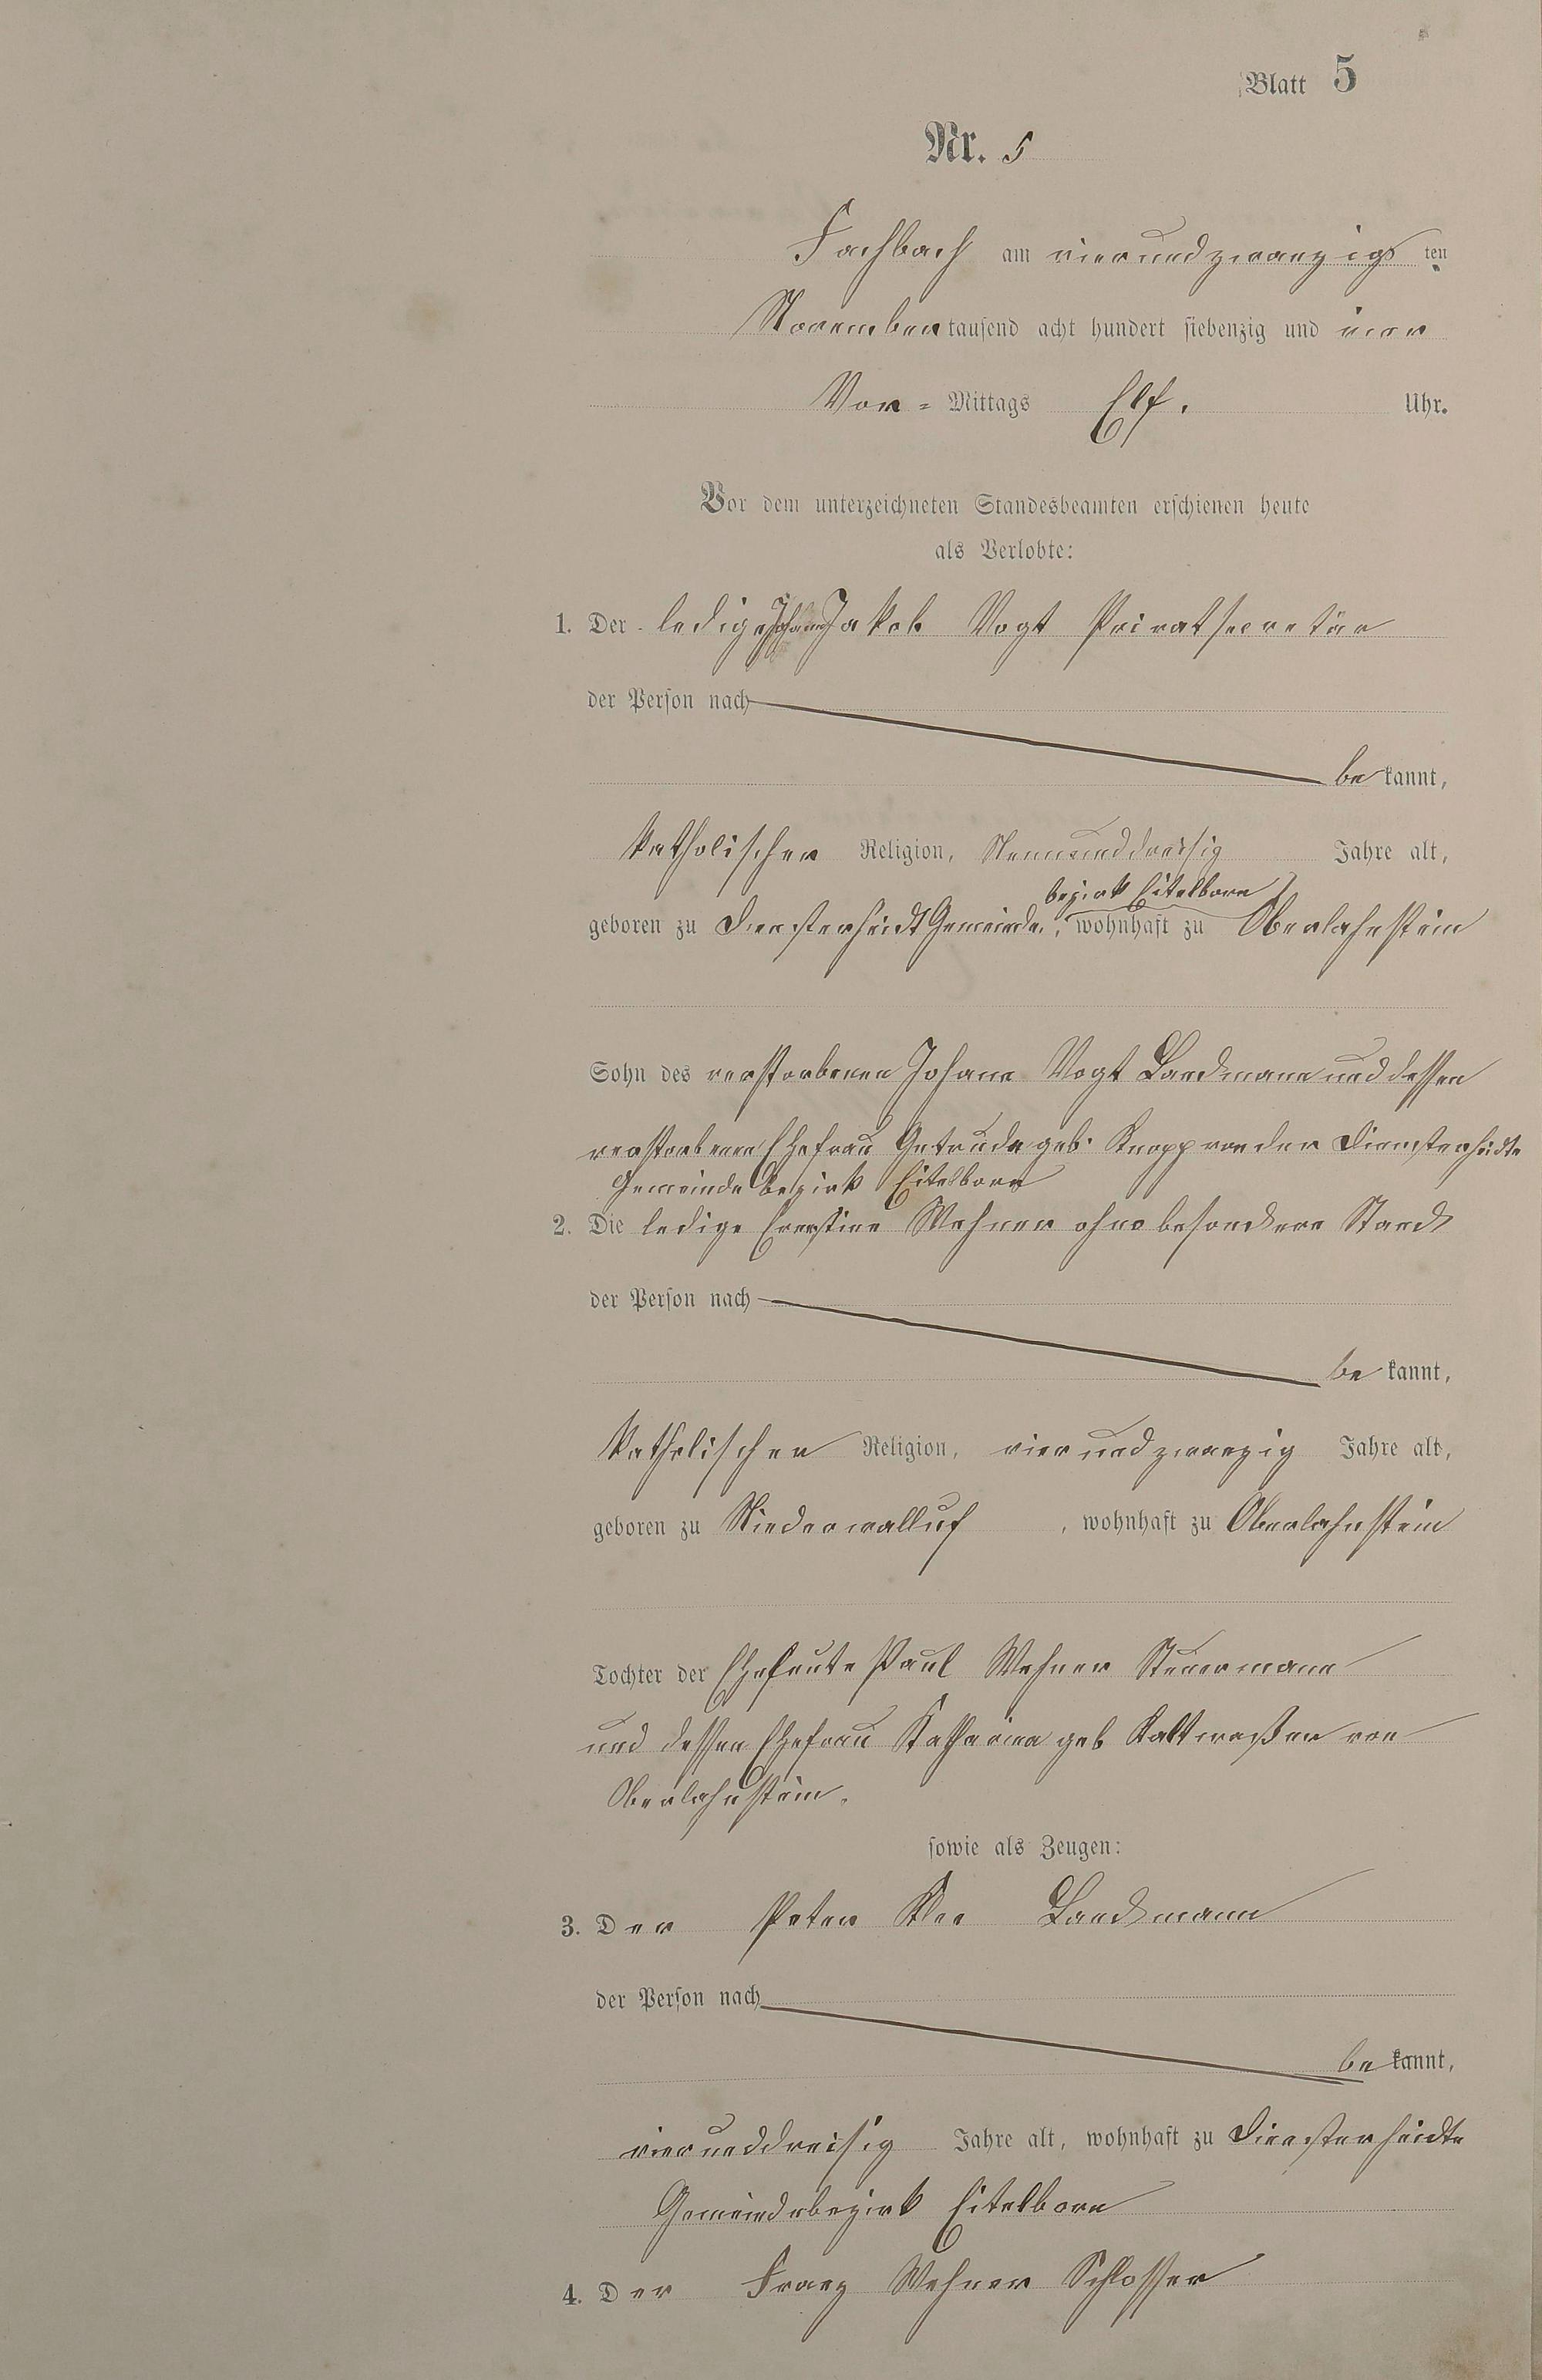 Blatt 5
Nr. 5
Fachbach am vierundzwanzigs ten
November tausend acht hundert siebenzig und vier
Vor = Mittags Elf. Uhr.
Vor dem unterzeichneten Standesbeamten erschienen heute
als Verlobte:
1. Der ledige Johann Jakob Vogt Privatsecretär
der Person nach
be kannt,
katholischer Religion, Neununddreisig Jahre alt,
bezirk Eitelborn
geboren zu Denzerheidt Gemeinde, wohnhaft zu Oberlahnstein
Sohn des verstorbenen Johann Vogt Landmann und dessen
verstorbenen Ehefrau Getrude geb. Knopp von der Dienzterheidte
Gemeinde bezirk Eitelborn
2. Die ledige Ernstine Wehner ohne besondere Stand
der Person nach
be kannt,
katholischer Religion, vierundzwanzig Jahre alt,
geboren zu Niederwalluf, wohnhaft zu Oberlahnstein
Tochter der Eheleute Paul Wehner Steuermann
und dessen Ehefrau Katharina geb Kaltwaßer von
Oberlahnstein.
sowie als Zeugen:
3. Der Peter Klee Landmann
der Person nach
be kannt,
vierunddreisig Jahre alt, wohnhaft zu
Gemeindebezirk Eitelborn
4. Der Franz Wehner Schlosser